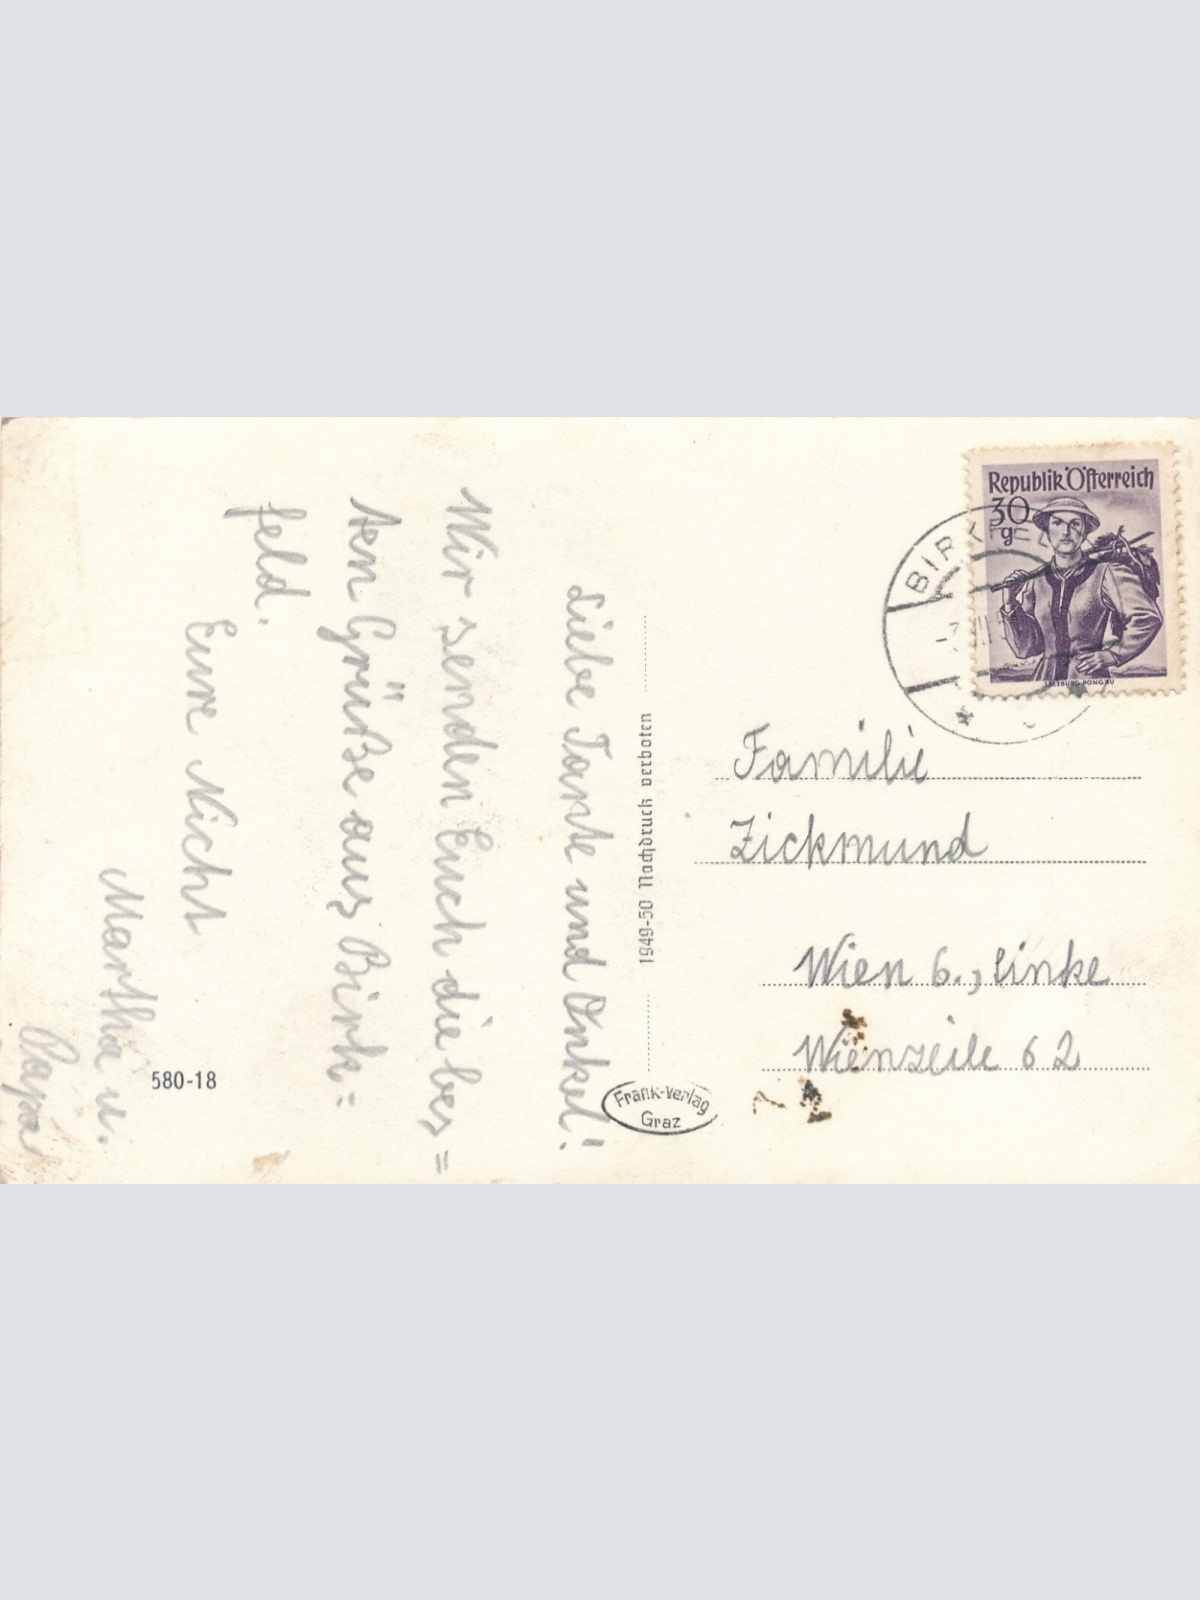 Liebe Tante und Onkel!
Wir senden Euch die bes=
ten Grüße aus Birk=
feld.
Eure Nicht
Martha u.
Papa
580-18
1949-50 Nachdruck verboten
Frank-Verlag
Graz
Republik Österreich
30
g
SALZBURG, PONGAU
Familie
Zickmund
Wien 6., linke
Wienzeile 62